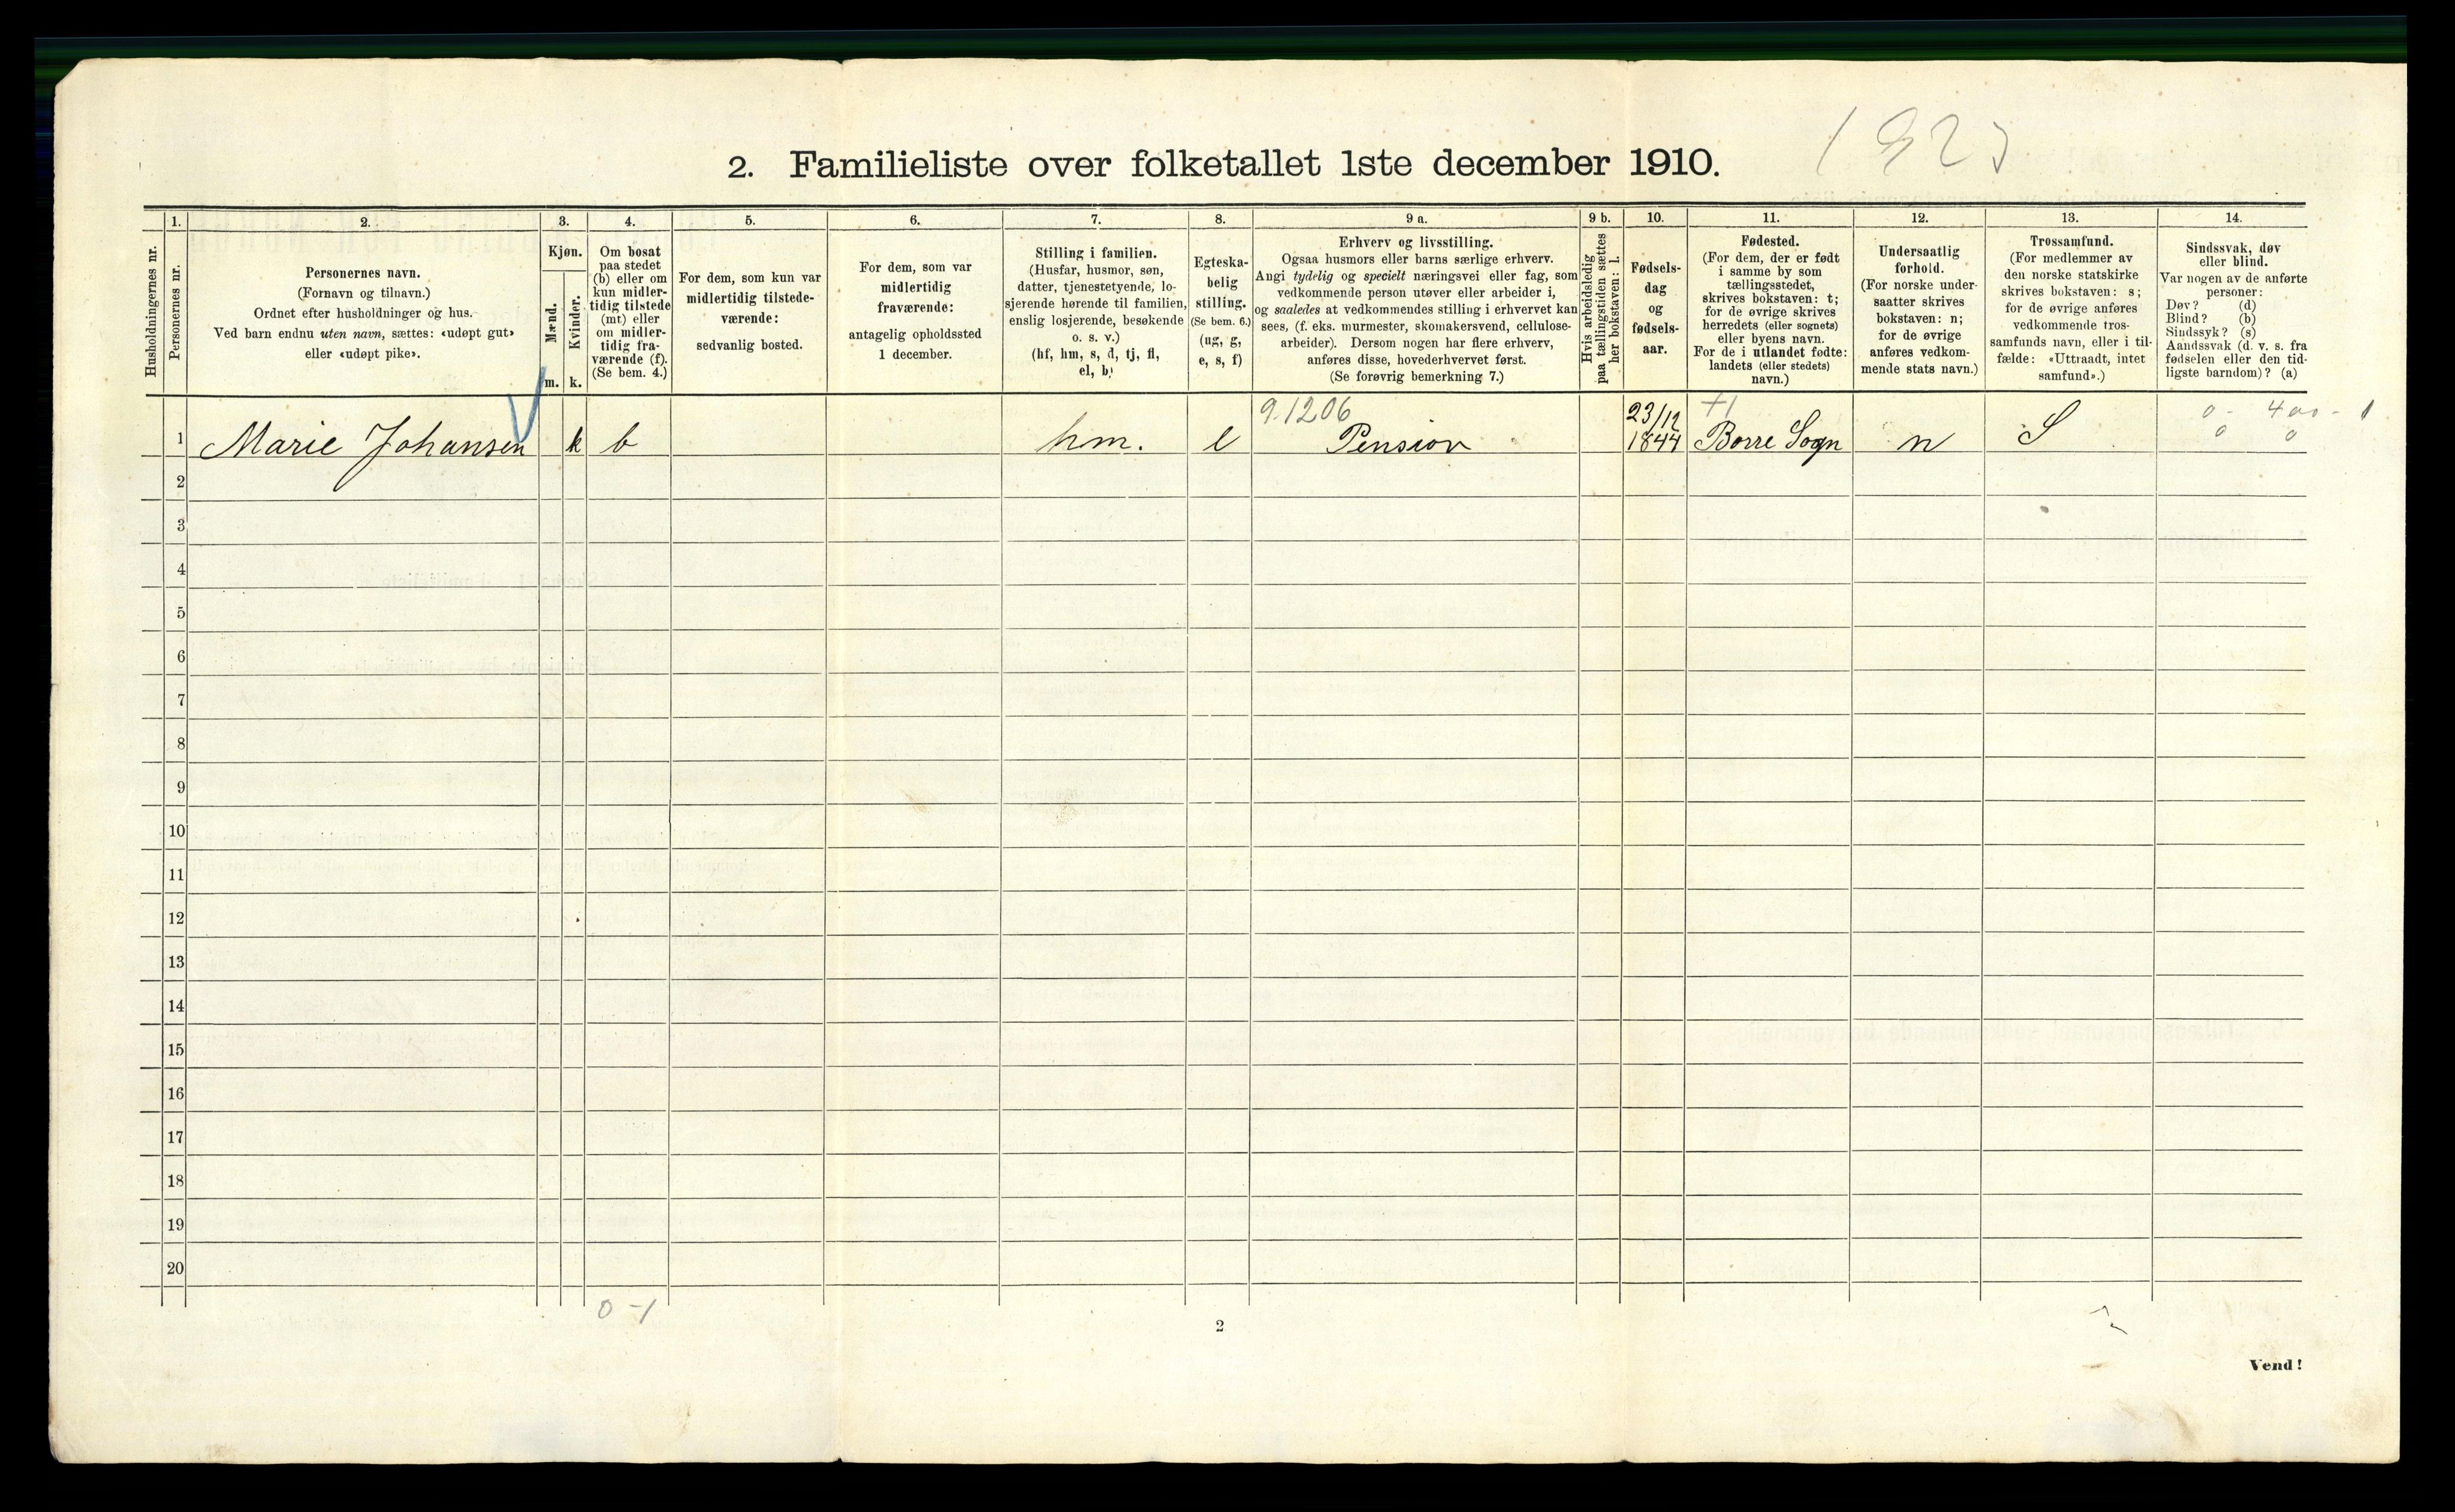 2. Familieliste over folketallet 1ste december 1910.
Husholdningernes nr.
1.
Personernes nr.
2.
Personernes navn.
(Fornavn og tilnavn.)
Ordnet efter husholdninger og hus.
Ved barn endnu uten navn, sættes: «udøpt gut»
eller «udøpt pike».
3.
Kjøn.
Mænd.
m.
Kvinder.
k.
4.
Om bosat
paa stedet
(b) eller om
kun midler-
tidig tilstede
(mt) eller
om midler-
tidig fra-
værende (f).
(Se bem. 4.)
5.
For dem, som kun var
midlertidig tilstede-
værende:
sedvanlig bosted.
6.
For dem, som var
midlertidig
fraværende:
antagelig opholdssted
1 december.
7.
Stilling i familien.
(Husfar, husmor, søn,
datter, tjenestetyende, lo-
sjerende hørende til familien,
enslig losjerende, besøkende
o. s. v.)
(hf, hm, s, d, tj, fl,
el, b)
8.
Egteska-
belig
stilling.
(Se bem. 6.)
(ug, g,
e, s, f)
9 a.
Erhverv og livsstilling.
Ogsaa husmors eller barns særlige erhverv.
Angi tydelig og specielt næringsvei eller fag, som
vedkommende person utøver eller arbeider i,
og saaledes at vedkommendes stilling i erhvervet kan
sees, (f. eks. murmester, skomakersvend, cellulose-
arbeider). Dersom nogen har flere erhverv,
anføres disse, hovederhvervet først.
(Se forøvrig bemerkning 7.)
9 b.
Hvis arbeidsledig
paa tællingstiden sættes
her bokstaven: l.
10.
Fødsels-
dag
og
fødsels-
aar.
11.
Fødested.
(For dem, der er født
i samme by som
tællingsstedet,
skrives bokstaven: t;
for de øvrige skrives
herredets (eller sognets)
eller byens navn.
For de i utlandet fødte:
landets (eller stedets)
navn.)
12.
Undersaatlig
forhold.
(For norske under-
saatter skrives
bokstaven: n;
for de øvrige
anføres vedkom-
mende stats navn.)
13.
Trossamfund.
(For medlemmer av
den norske statskirke
skrives bokstaven: s;
for de øvrige anføres
vedkommende tros-
samfunds navn, eller i til-
fælde: «Uttraadt, intet
samfund».)
14.
Sindssvak, døv
eller blind.
Var nogen av de anførte
personer:
Døv? (d)
Blind? (b)
Sindssyk? (s)
Aandssvak (d. v. s. fra
fødselen eller den tid-
ligste barndom)? (a)
9.1206 23/12 0 - 400 - 1
1 Marie Johansen k b hm. e Pension 1844 Borre Sogn n S 0 0
2
3
4
5
6
7
8
9
10
11
12
13
14
15
16
17
18
19
20
0 - 1
2
Vend!